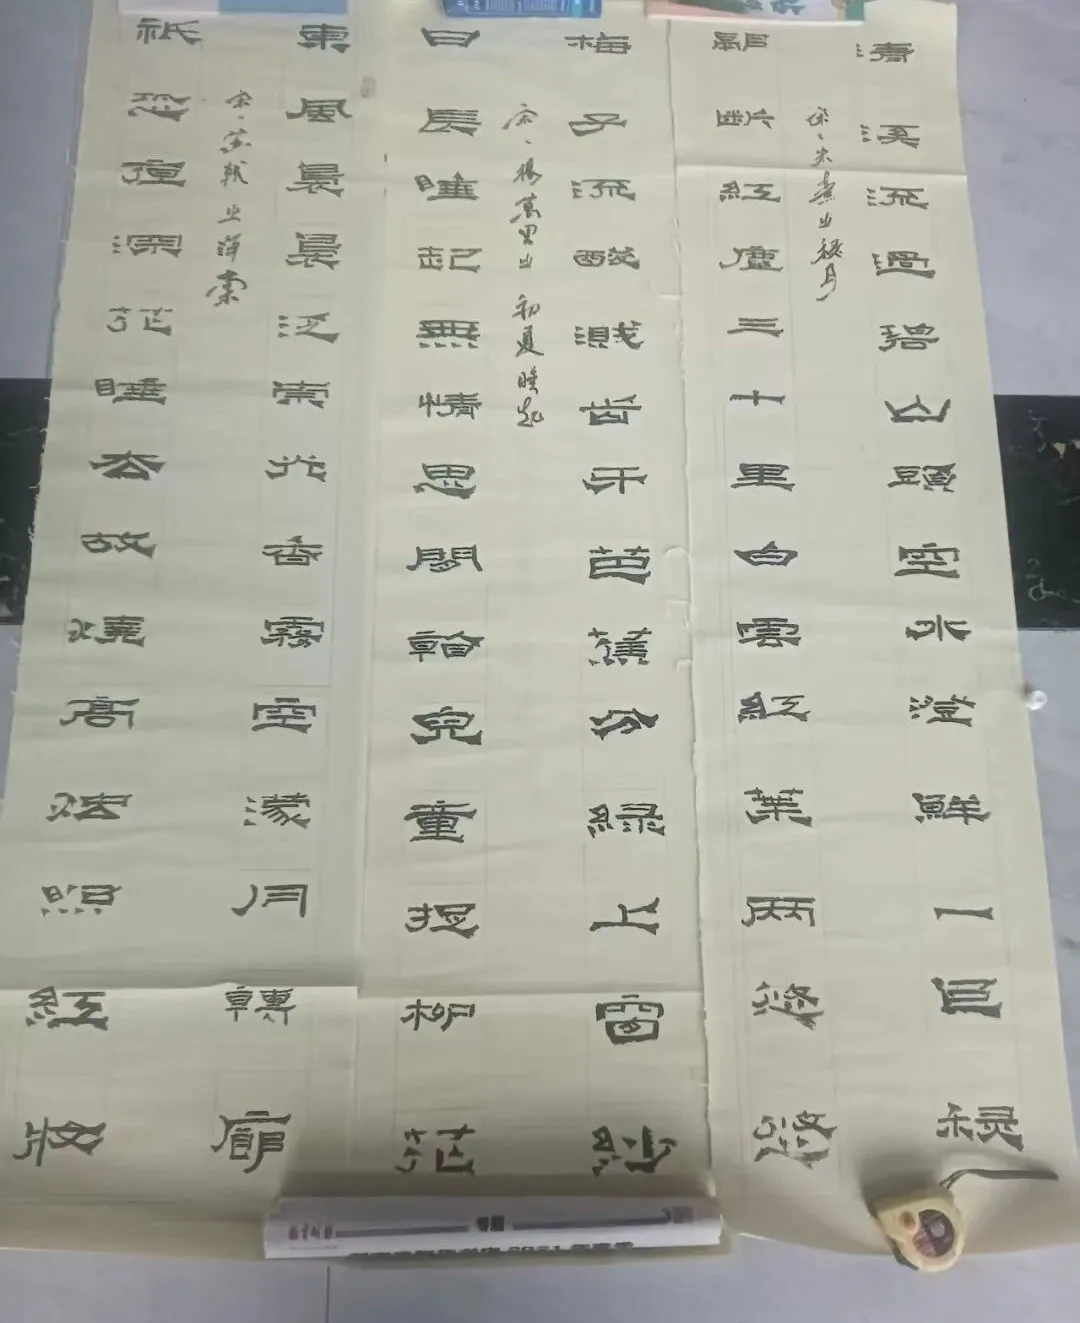 清溪流過碧山頭空水澄鮮一色秋
隔斷紅塵三十里白雲紅葉兩悠悠
宋、朱熹之秋月
梅子流酸濺齒牙芭蕉分綠上窗紗
日長睡起無情思閒看兒童捉柳花
宋、楊萬里之初夏睡起
東風裊裊泛崇光香霧空濛月轉廊
祇恐夜深花睡去故燒高燭照紅妝
宋、蘇軾之海棠